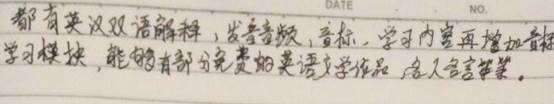 DATE NO.
都有英汉双语解释，发音音频，音标。学习内容再增加音标
学习模块，能够有部分免费的英语文学作品，名人名言等等。